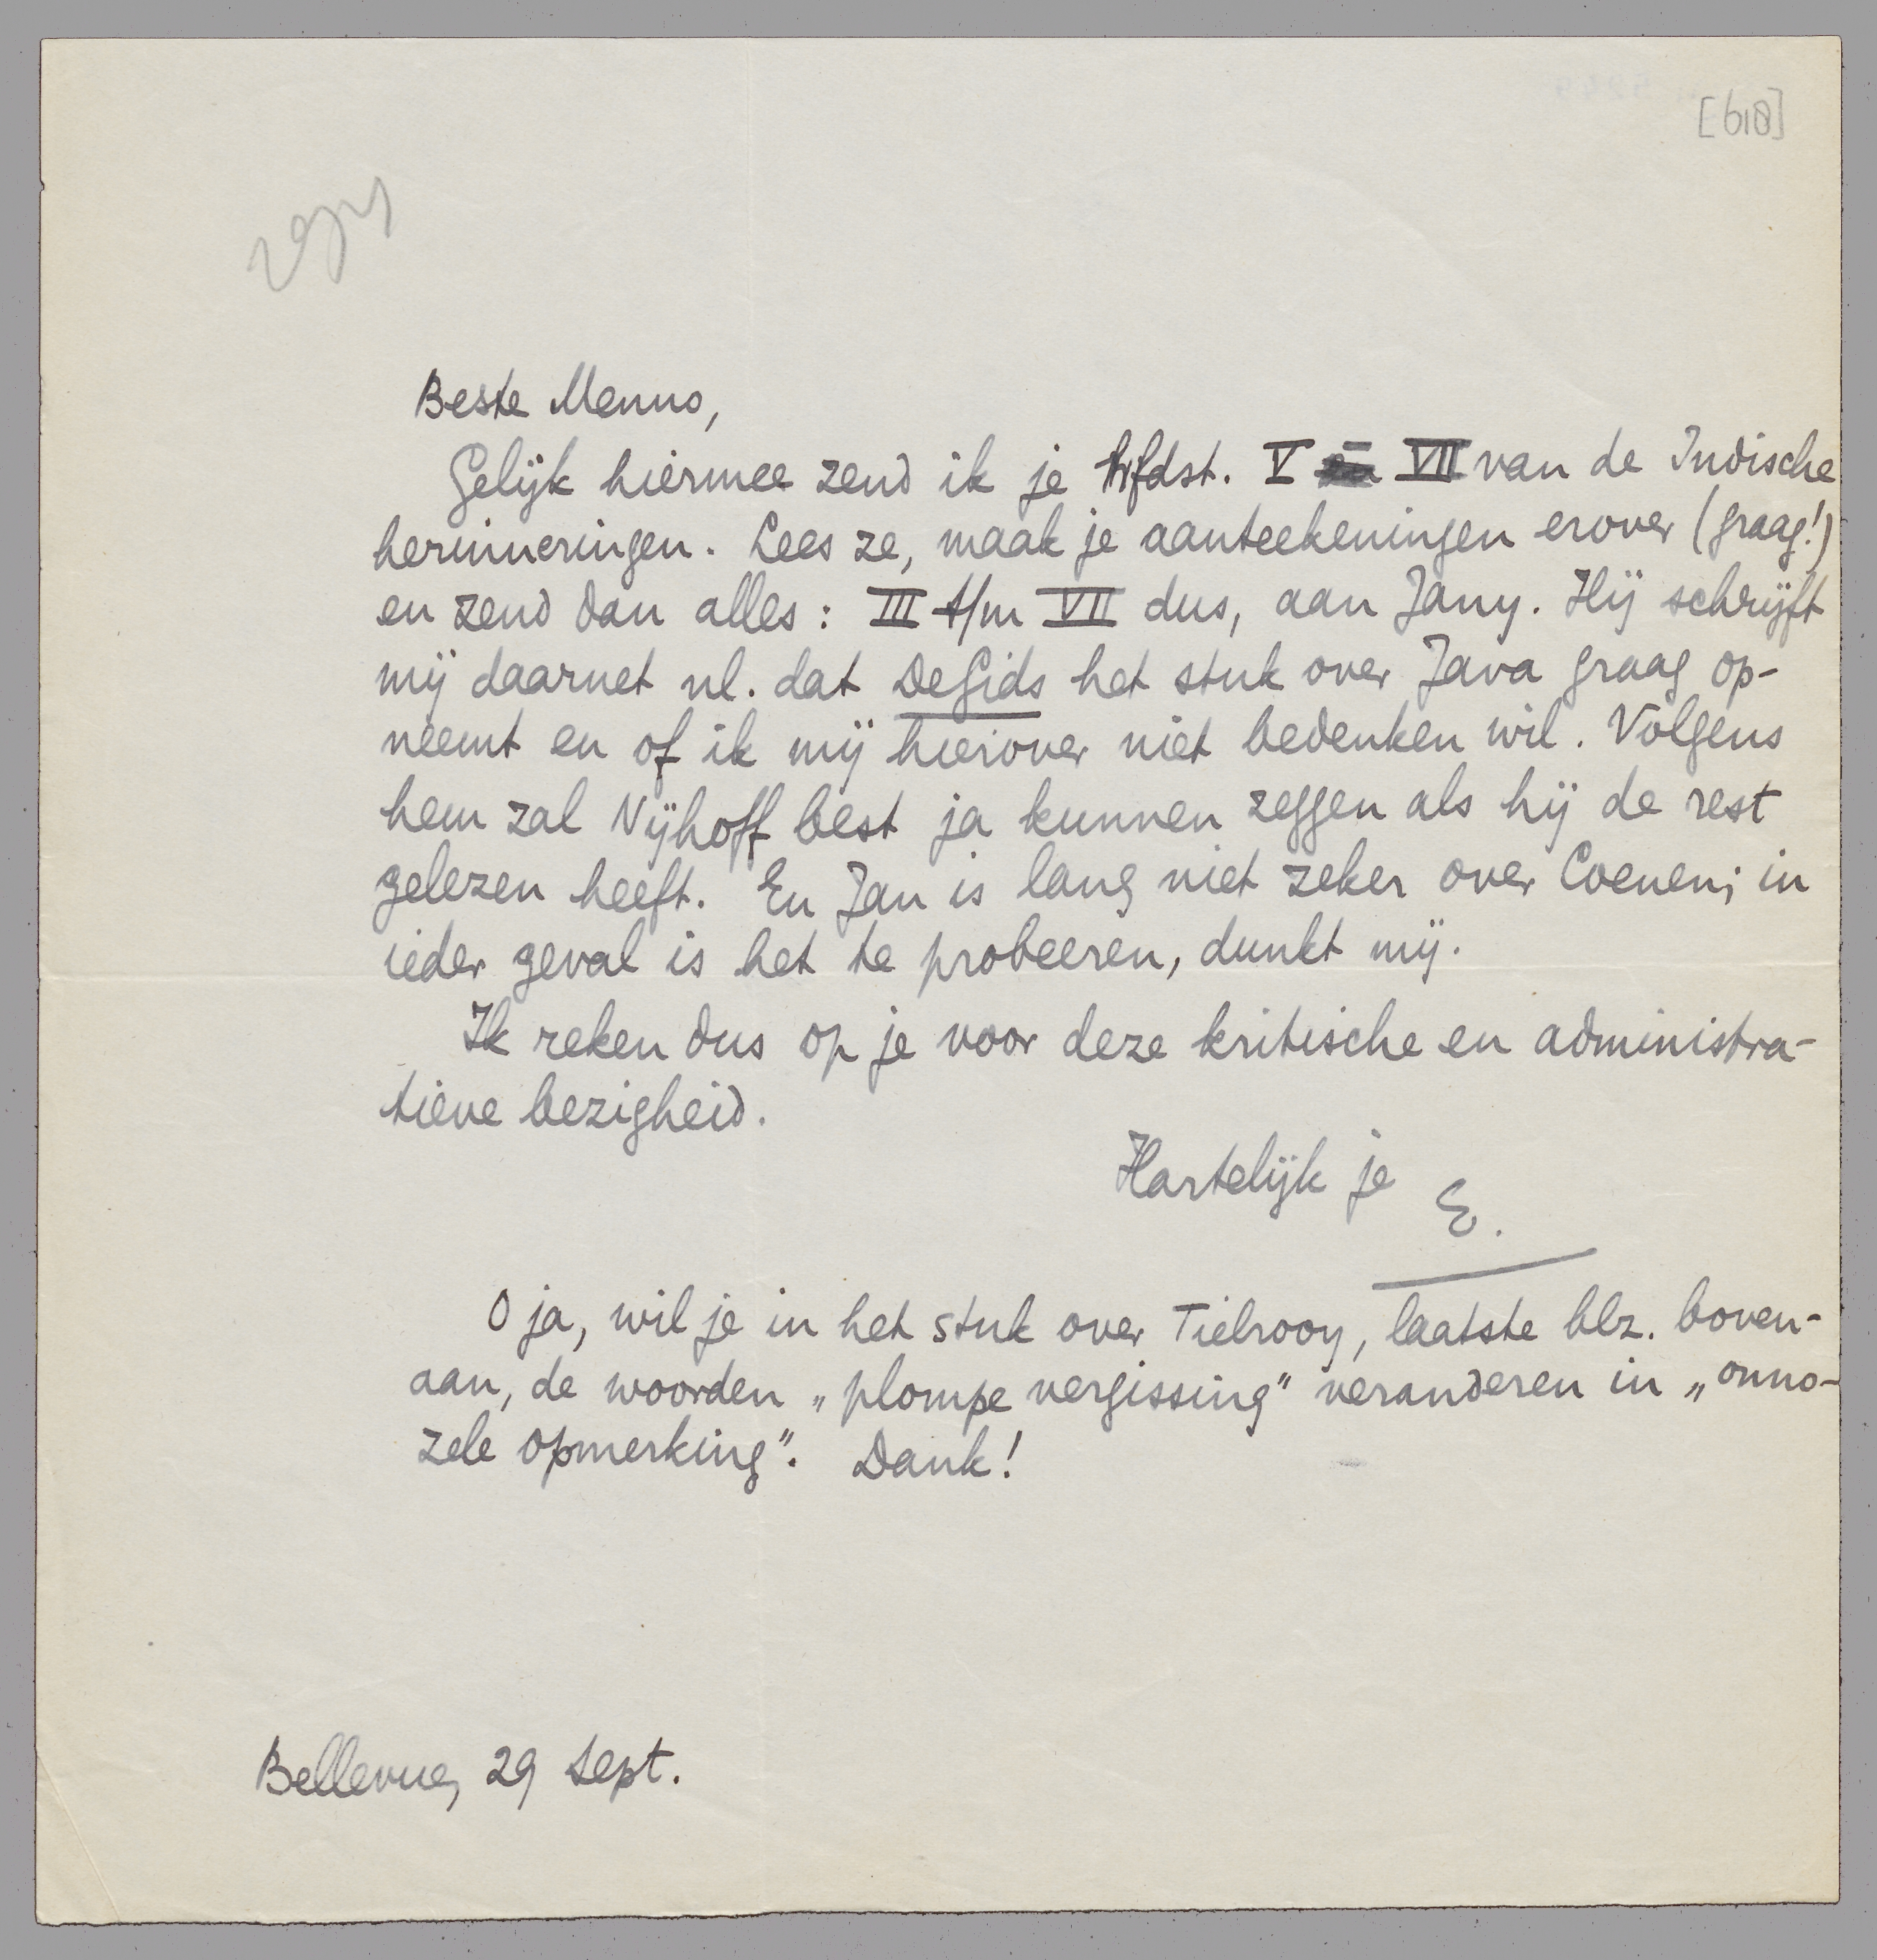 [618]
Beste Menno,
Gelijk hiermee zend ik je hfdst. V – VII van de Indische
herinneringen. Lees ze, maak je aanteekeningen erover (graag!)
en zend dan alles: III t/m VII dus, aan Jany. Hij schrijft
mij daarnet nl. dat De Gids het stuk over Java graag op-
neemt en of ik mij hierover niet bedenken wil. Volgens
hem zal Nijhoff best ja kunnen zeggen als hij de rest
gelezen heeft. En Jan is lang niet zeker over Coenen; in
ieder geval is het te probeeren, dunkt mij.
Ik reken dus op je voor deze kritische en administra-
tieve bezigheid.
Hartelijk je E.
O ja, wil je in het stuk over Tielrooy, laatste blz. boven-
aan, de woorden „plompe vergissing" veranderen in „onno-
zele opmerking". Dank!
Bellevue, 29 Sept.